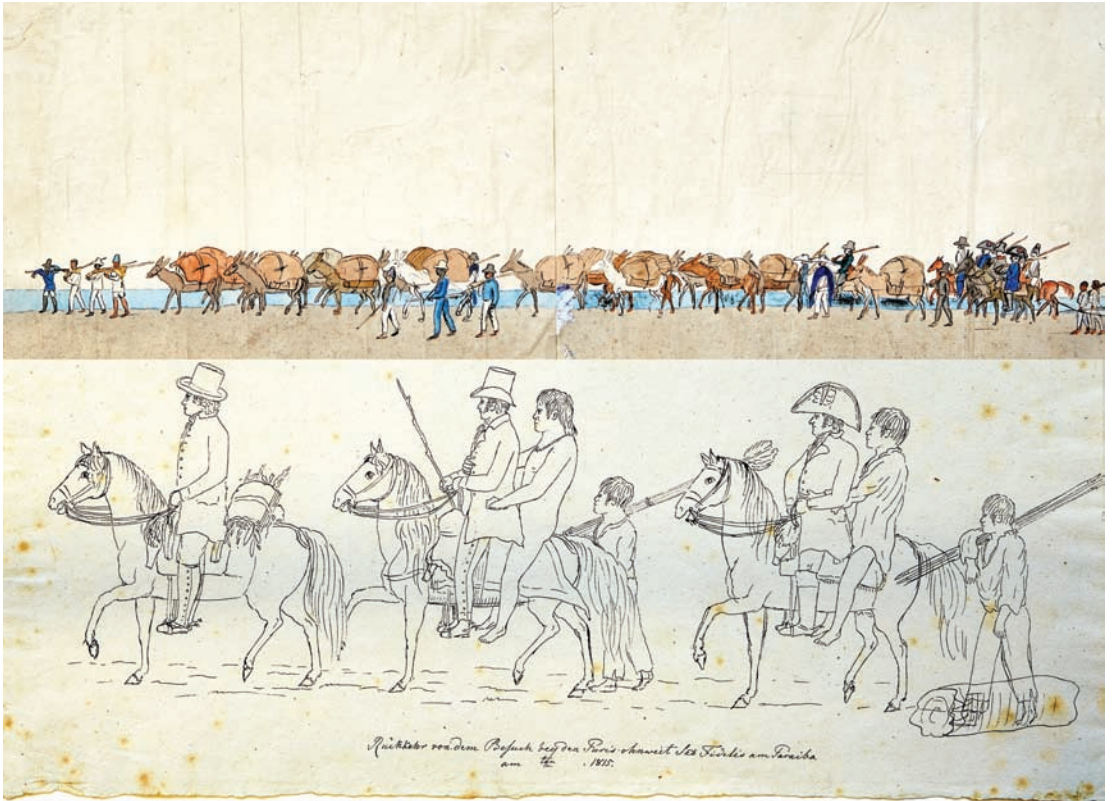 Rückkehr von dem Besuch bey den Puris ohnweit Sta Fidelis am Paraiba
am ten . 1815.